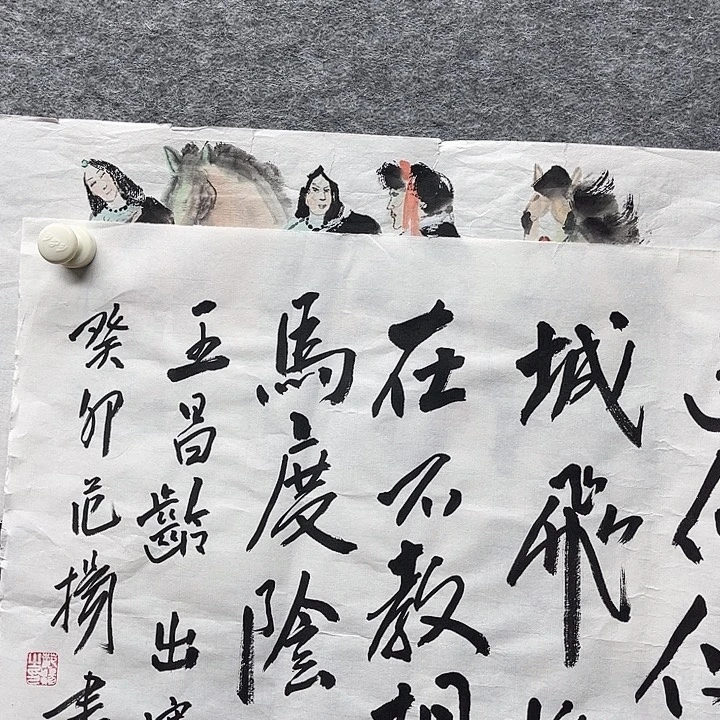 城飛
在不教胡
馬度陰
王昌齡出塞
癸卯范揚書